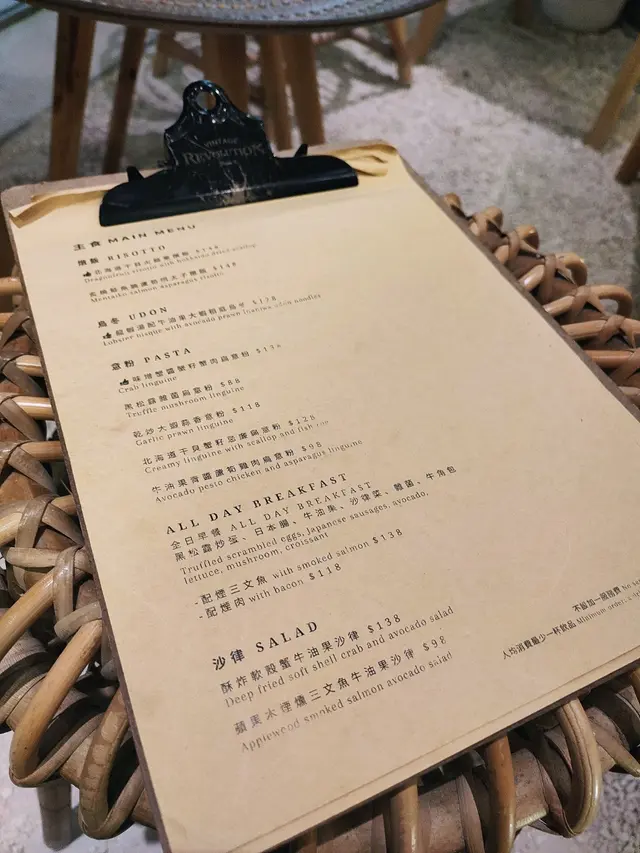 VINTAGE
REVOLUTION
主食 MAIN MENU
燉飯 RISOTTO
Mentaiko salmon asparagus risotto
烏冬 UDON
Lobster bisque with avocado prawn inaniwa udon noodles
意粉 PASTA
Crab linguine
黑松露雜菌扁意粉 $88
Truffle mushroom linguine
乾炒大蝦蒜香意粉 $118
Garlic prawn linguine
北海道干貝蟹籽忌廉扁意粉 $128
Creamy linguine with scallop and fish roe
牛油果青醬蘆筍雞肉扁意粉 $98
Avocado pesto chicken and asparagus linguine
ALL DAY BREAKFAST
全日早餐 ALL DAY BREAKFAST
黑松露炒蛋、日本腸、牛油果、沙律菜、雜菌、牛角包
Truffled scrambled eggs, Japanese sausages, avocado,
lettuce, mushroom, croissant
-配煙三文魚 with smoked salmon $138
-配煙肉 with bacon $118
沙律 SALAD
酥炸軟殼蟹牛油果沙律 $138
Deep fried soft shell crab and avocado salad
蘋果木煙燻三文魚牛油果沙律 $98
Applewood smoked salmon avocado salad
不設加一服務費 No
人均消費最少一杯飲品 Minimum order: